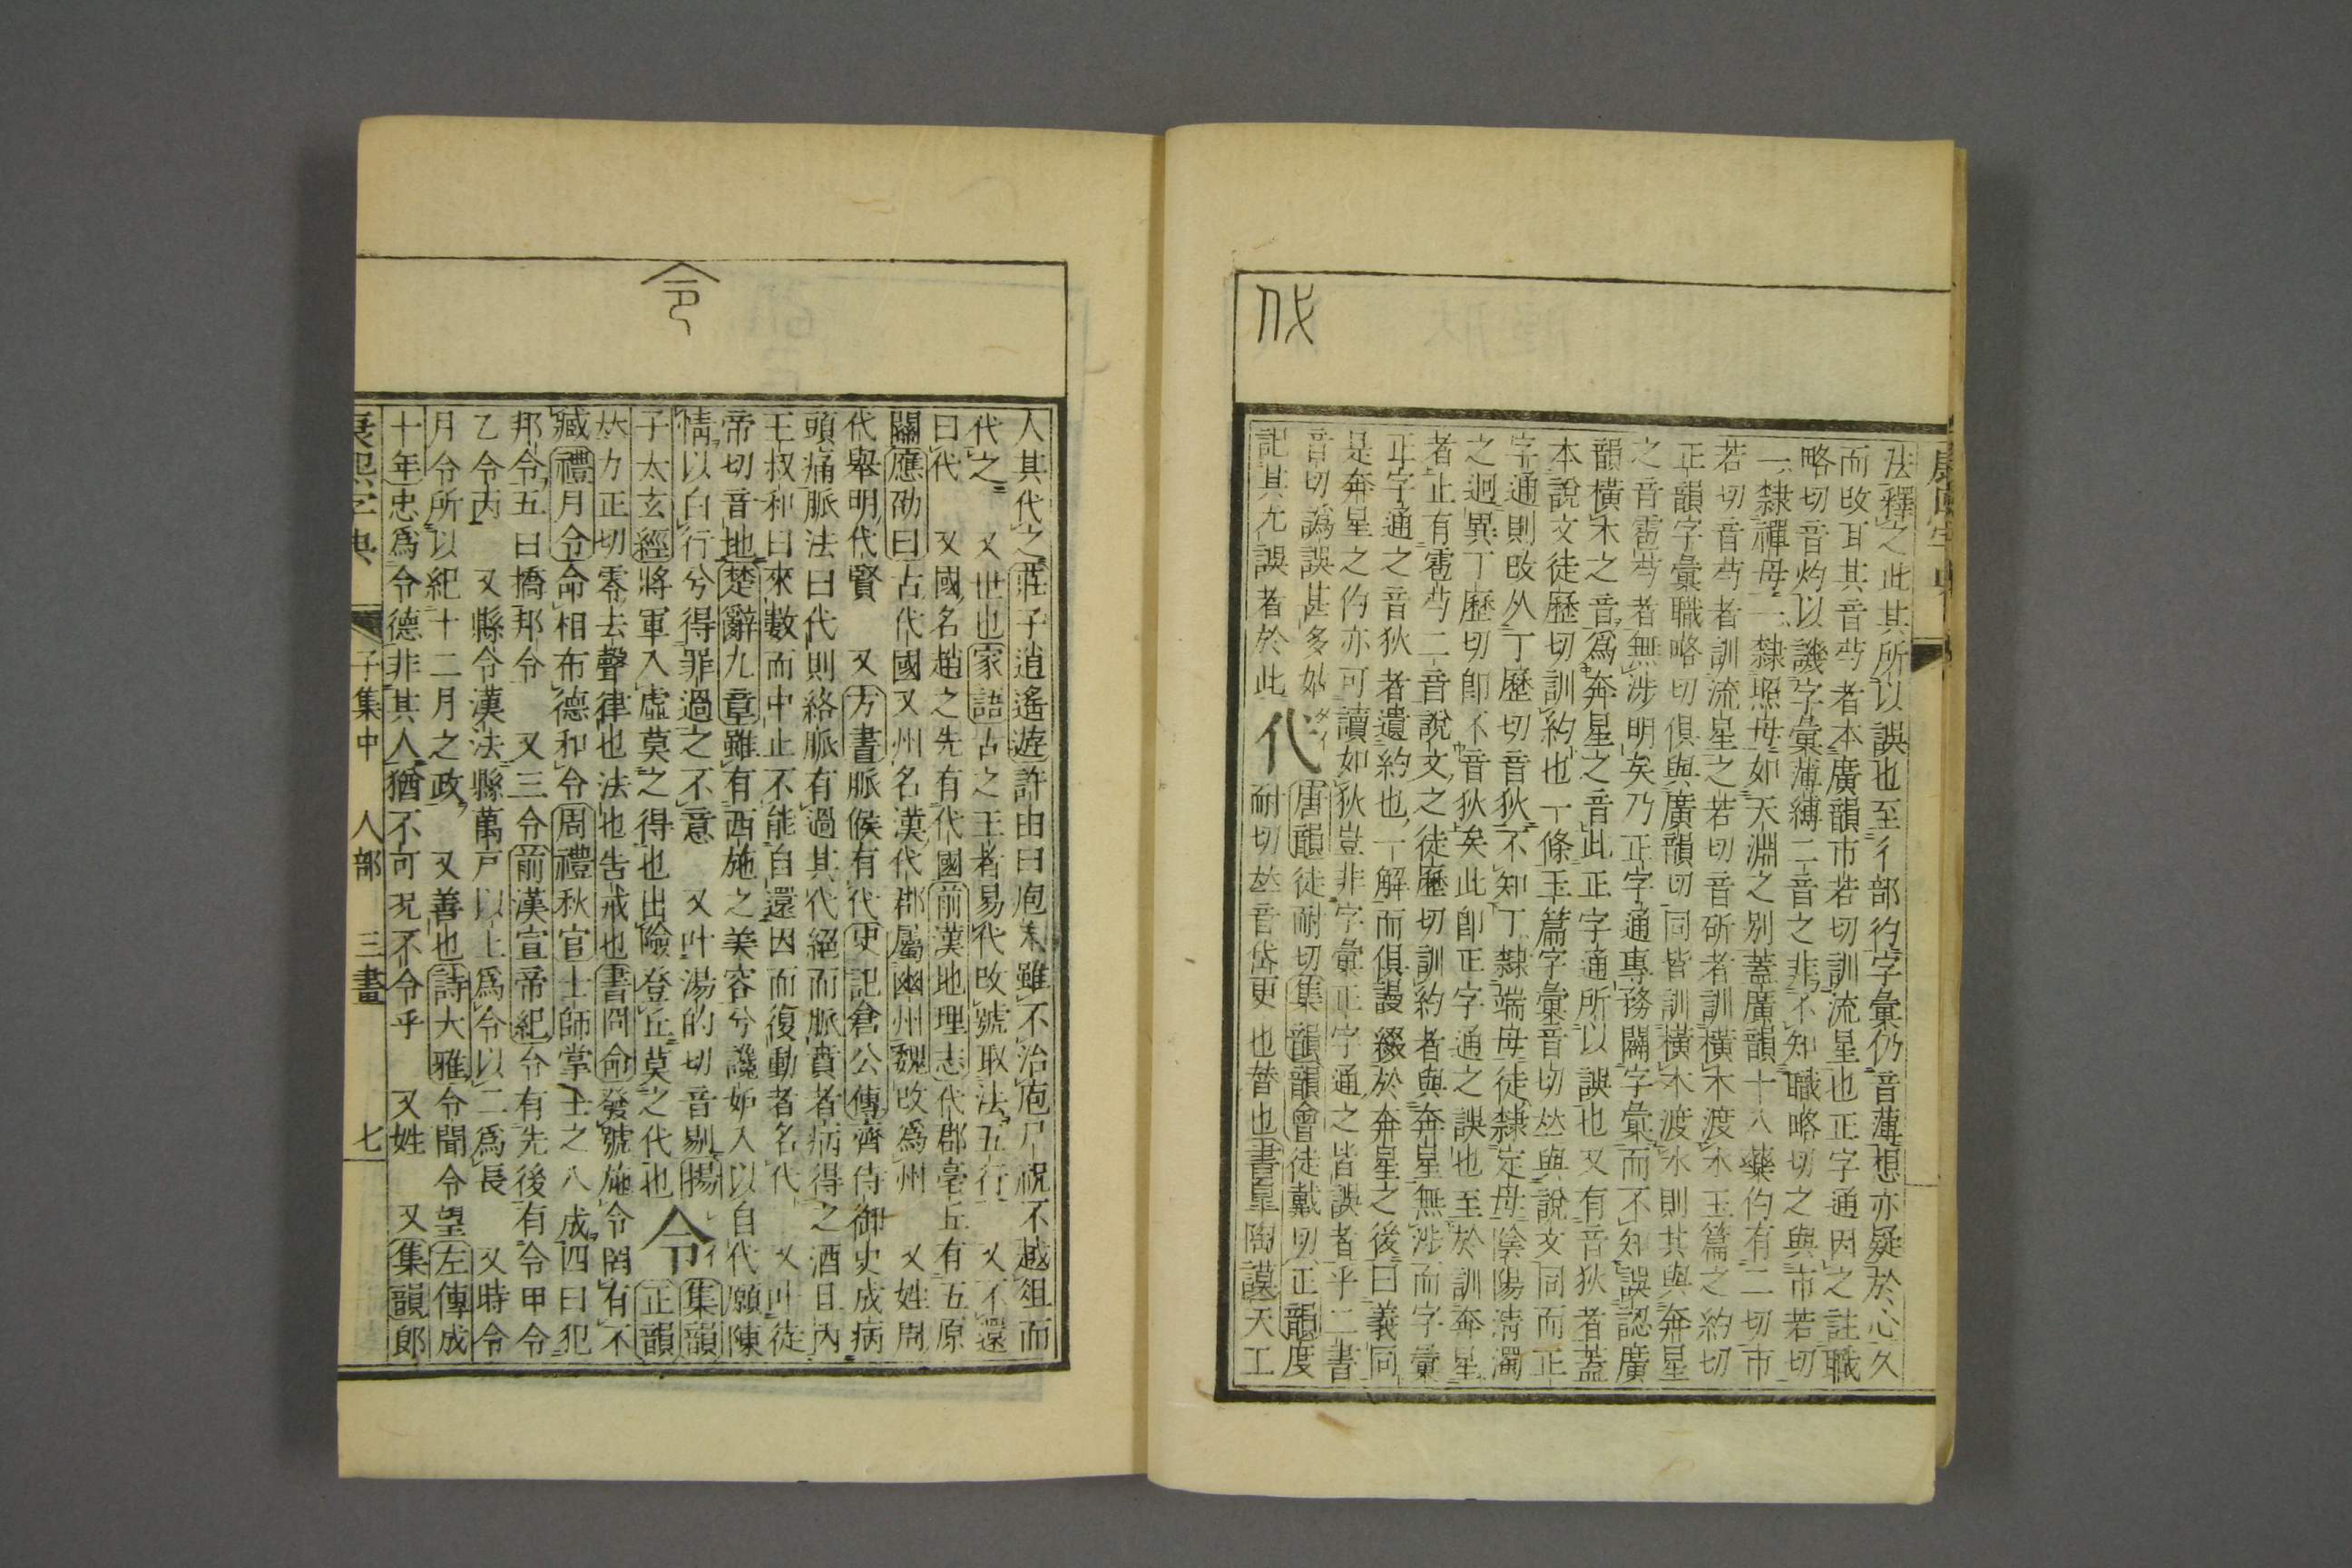 康熙字典
法釋之此其所以誤也至彳部彴字彙仍音薄想亦疑於心久
而改耳其音芍者本廣韻市若切訓流星也正字通因之註職
略切音灼以譏字彙薄縛二音之非不知職略切之與市若切
一隸禪母一隸照母如天淵之別蓋廣韻十八藥彴有二切市
若切音芍者訓流星之若切音斫者訓橫木渡水玉篇之約切
正韻字彙職略切俱與廣韻切同皆訓橫木渡水則其與奔星
之音雹芍者無涉明矣乃正字通專務闢字彙而不知誤認廣
韻橫木之音爲奔星之音此正字通所以誤也又有音狄者蓋
本說文徒歷切訓約也一條玉篇字彙音切𠀤與說文同而正
字通則改从丁歷切音狄不知丁隸端母徒隸定母陰陽淸濁
之迥異丁歷切卽不音狄矣此卽正字通之誤也至於訓奔星
者止有雹芍二音說文之徒歷切訓約者與奔星無涉而字彙
正字通之音狄者遺約也一解而俱謾綴於奔星之後曰義同
是奔星之彴亦可讀如狄豈非字彙正字通之皆誤者乎二書
音切譌誤甚多姑
記其尤誤者於此
代
タイ
唐韻徒耐切集韻韻會徒戴切正韻度
耐切𠀤音岱更也替也書皐陶謨天工
人其代之莊子逍遙遊許由曰庖人雖不治庖尸祝不越俎而
代之　又世也家語古之王者易代改號取法五行　又不還
曰代　又國名趙之先有代國前漢地理志代郡亳丘有五原
關應劭曰古代國又州名漢代郡屬幽州魏改爲州　又姓周
代舉明代賢　又方書脈候有代史記倉公傳齊侍御史成病
頭痛脈法曰代則絡脈有過其代絕而脈賁者病得之酒且內
王叔和曰來數而中止不能自還因而復動者名代　又叶徒
帝切音地楚辭九章雖有西施之美容兮讒妒入以自代願陳
情以白行兮得罪過之不意　又叶湯的切音剔揚
子太玄經將軍入虛莫之得也出險登丘莫之代也
令
集韻
正韻
𠀤力正切零去聲律也法也告戒也書冏命發號施令罔有不
臧禮月令命相布德和令周禮秋官士師掌士之八成四曰犯
邦令五曰撟邦令　又三令前漢宣帝紀令有先後有令甲令
乙令丙　又縣令漢法縣萬戸以上爲令以二爲長　又時令
月令所以紀十二月之政　又善也詩大雅令聞令望左傳成
十年忠爲令德非其人猶不可況不令乎　又姓　又集韻郎
康熙字典　子集中　人部　三畫　七